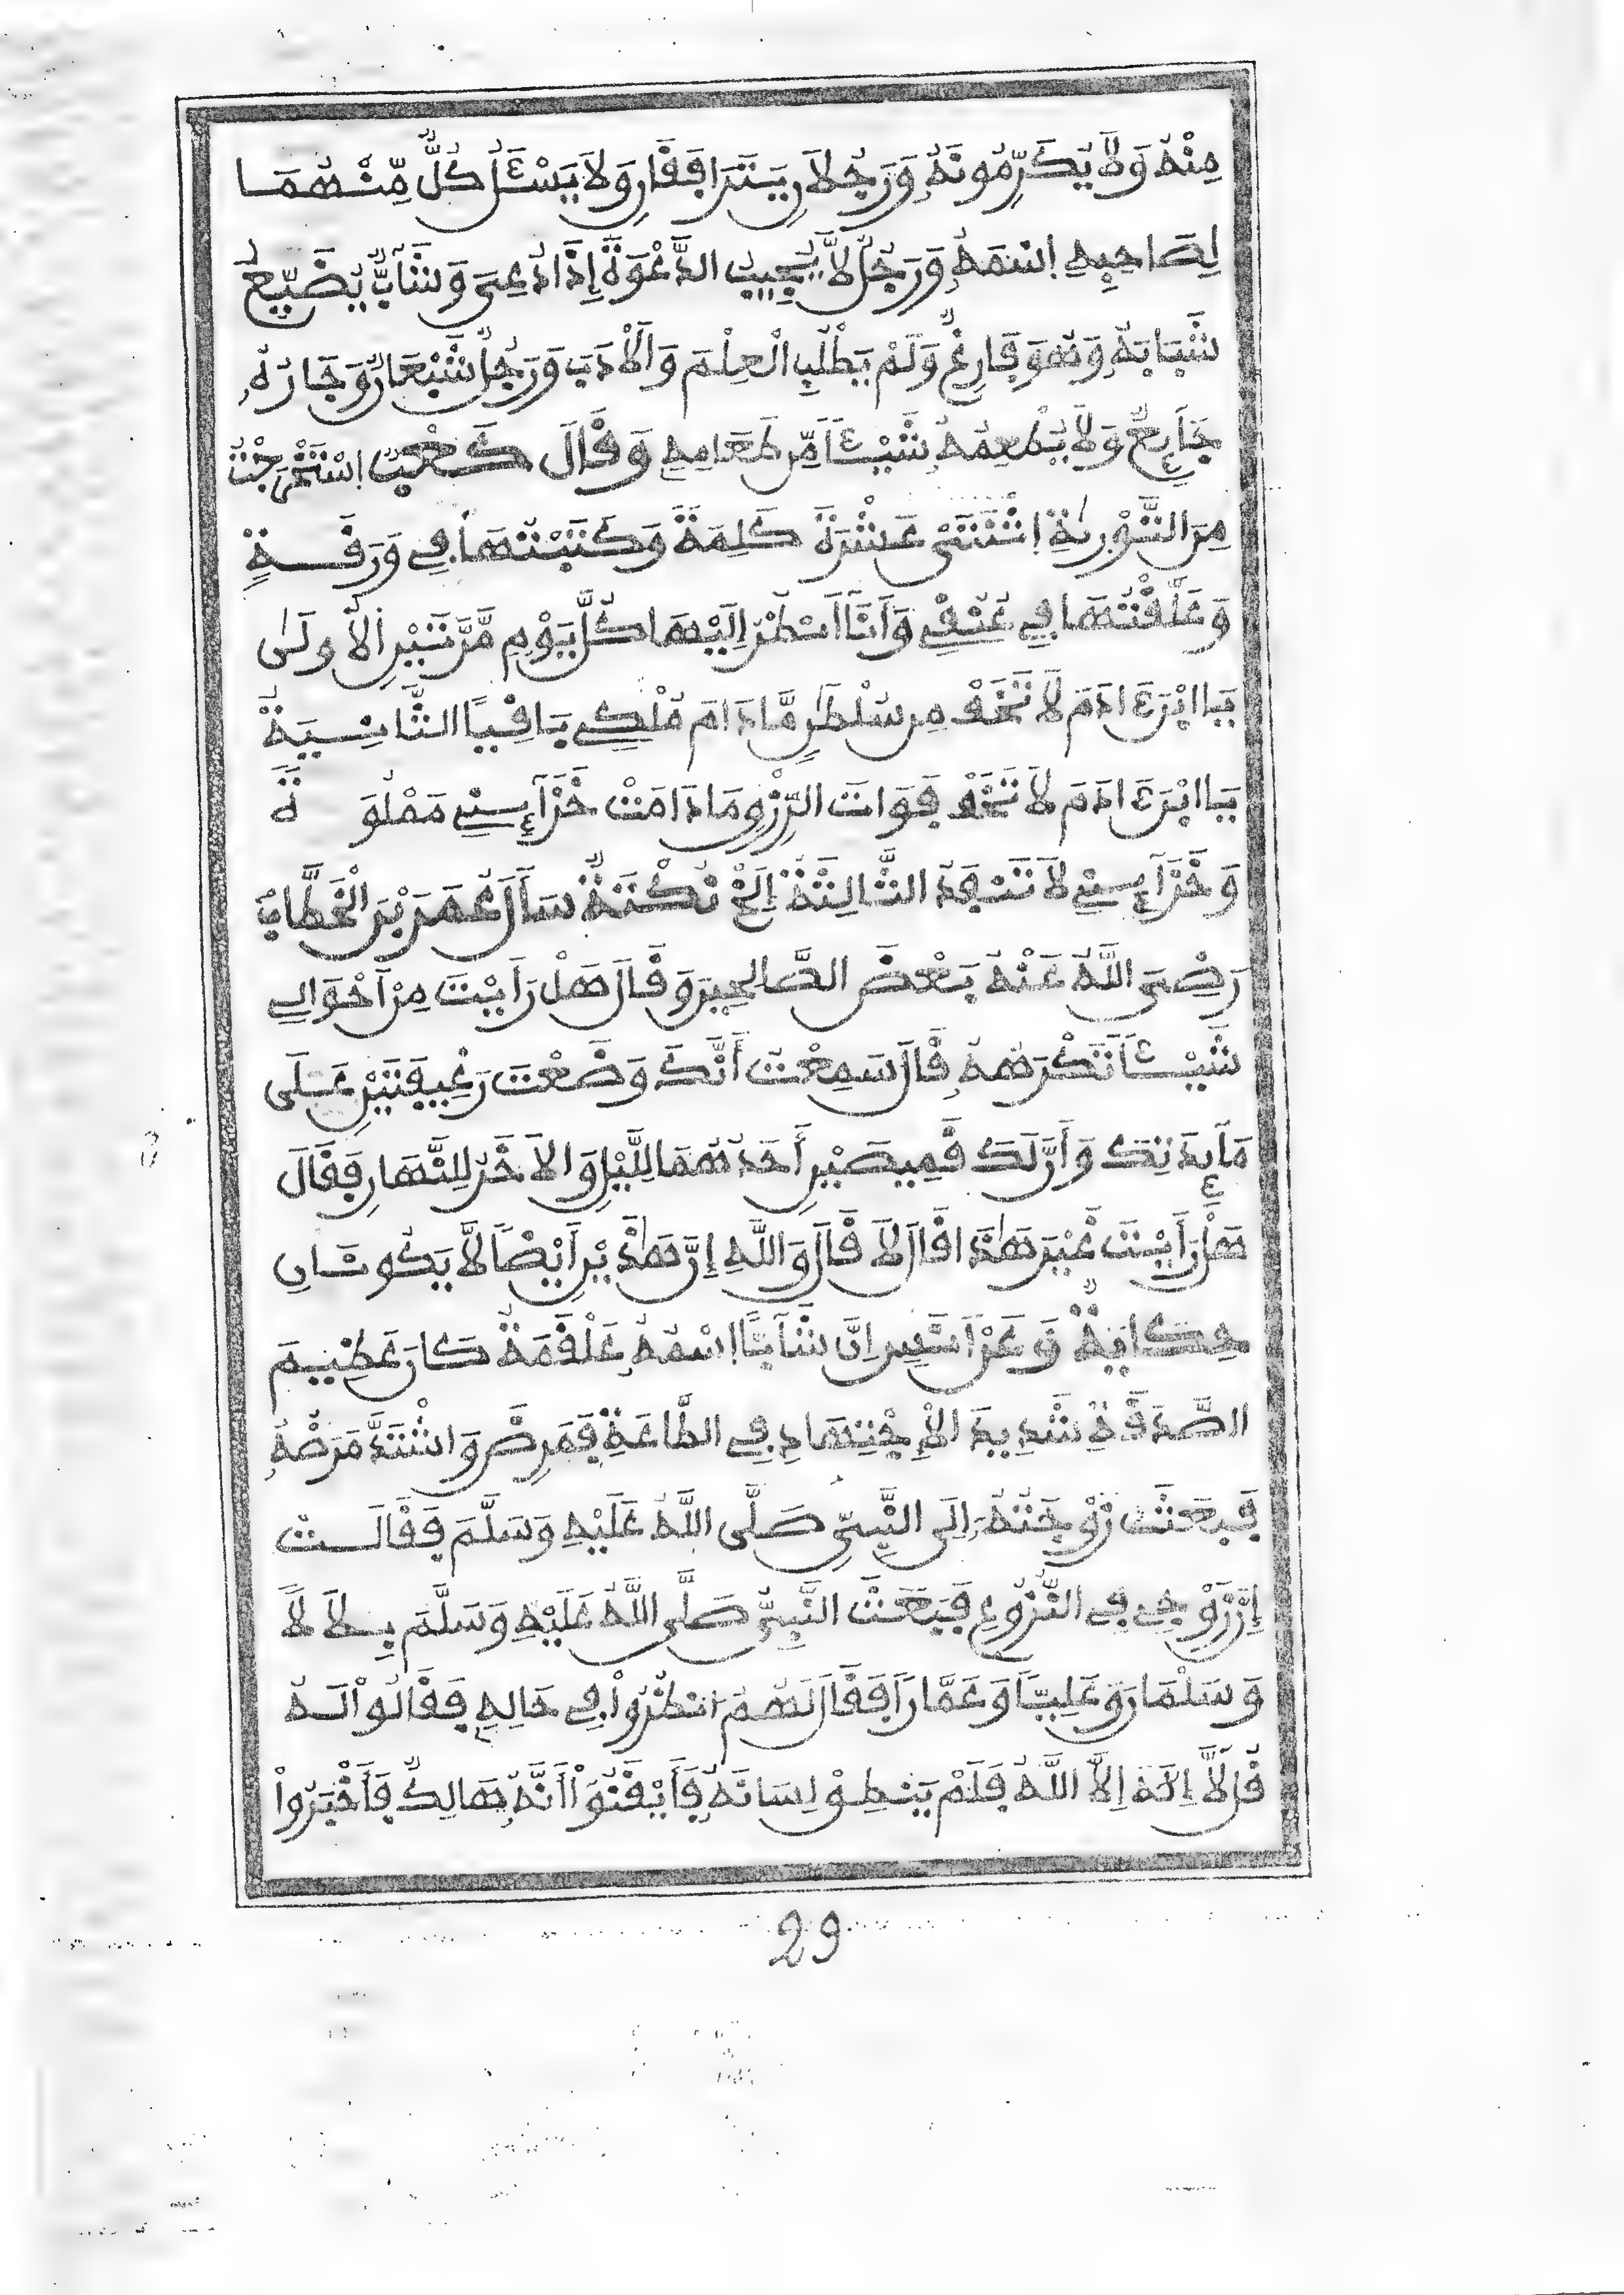 مِنْهُ وَلَا يُكَرِّمُونَهُ وَرَجُلَانِ يَتَرَافَقَانِ وَلَا يَسْـَٔلُ كُلٌّ مِّنْهُمَا
لِصَاحِبِهِ اِسْمَهُ وَرَجُلٌ لَّا يُجِيبُ الدَّعْوَةَ إِذَا دُعِيَ وَشَآبٌّ يُضَيِّعُ
شَبَابَهُ وَهُوَ فَارِغٌ وَلَمْ يَطْلُبِ الْعِلْمَ وَالْأَدَبَ وَرَجُلٌ شَبْعَانٌ وَجَارُهُ
جَآئِعٌ وَلَا يُطْعِمُهُ شَيْـًٔا مِّن طَعَامِهِ وَقَالَ كَعْبٌ اِسْتَخْرَجْتُ
مِنَ التَّوْرٰيةِ اِثْنَتَىْ عَشْرَةَ كَلِمَةً وَكَتَبْتُهَا فِي وَرَقَــةٍ
وَعَلَّقْتُهَا فِي عُنُقِي وَأَنَا أَنظُرُ إِلَيْهَا كُلَّ يَوْمٍ مَّرَّتَيْنِ الْأُولَىٰ
يَا ابْنَ ءَادَمَ لَا تَخَفْ مِن سُلْطَٰنٍ مَّادَامَ مُلْكِي بَاقِيًا الثَّانِيَةُ
يَا ابْنَ ءَادَمَ لَا تَخَفْ فَوَاتَ الرِّزْقِ مَادَامَتْ خَزَآئِنِي مَمْلُوَةً
وَخَزَآئِنِي لَا تَنفَدُ الثَّالِثَةُ إِلَخْ نُكْتَةٌ سَأَلَ عُمَرَ بْنَ الْخَطَّابُ
رَضِيَ اللَّهُ عَنْهُ بَعْضَ الصَّالِحِينَ وَقَالَ هَلْ رَأَيْتَ مِنْ أَحْوَالِي
شَيْـًٔا تَكْرَهُهُ قَالَ سَمِعْتُ أَنَّكَ وَضَعْتَ رَغِيفَتَيْنِ عَلَى
مَآئِدَتِكَ وَأَنَّ لَكَ قَمِيصَيْنِ أَحَدُهُمَا لِلَّيْلِ وَالْآخَرُ لِلنَّهَارِ فَقَالَ
هَلْ رَأَيْتَ غَيْرَ هَٰذَا قَالَ لَا قَالَ وَاللَّهِ إِنَّ هَٰذَيْنِ أَيْضًا لَّا يَكُونَانِ
حِكَايَةٌ وَعَنْ أَنَسٍ اِنَّ شَآبًّا اِسْمُهُ عَلْقَمَةُ كَانَ عَظِيمَ
الصَّدَقَةِ شَدِيدَ الْاِجْتِهَادِ فِي الطَّاعَةِ فَمَرِضَ وَاشْتَدَّ مَرَضُهُ
فَبَعَثَتْ زَوْجَتُهُ إِلَى النَّبِيِّ صَلَّى اللَّهُ عَلَيْهِ وَسَلَّمَ فَقَالَــتْ
إِنَّ زَوْجِي فِي النُّزُوعِ فَبَعَثَ النَّبِيُّ صَلَّى اللَّهُ عَلَيْهِ وَسَلَّمَ بِــلَالًا
وَسَلْمَانَ وَعَلِيًّا وَعَمَّارًا فَقَالَ لَهُمْ اُنظُرُواْ فِي حَالِهِ فَقَالُواْ لَــهُ
قُل لَّا إِلَهَ إِلَّا اللَّهُ فَلَمْ يَنطِقْ لِسَانُهُ فَأَيْقَنُواْ أَنَّهُ هَالِكٌ فَأَخْبَرُواْ
29